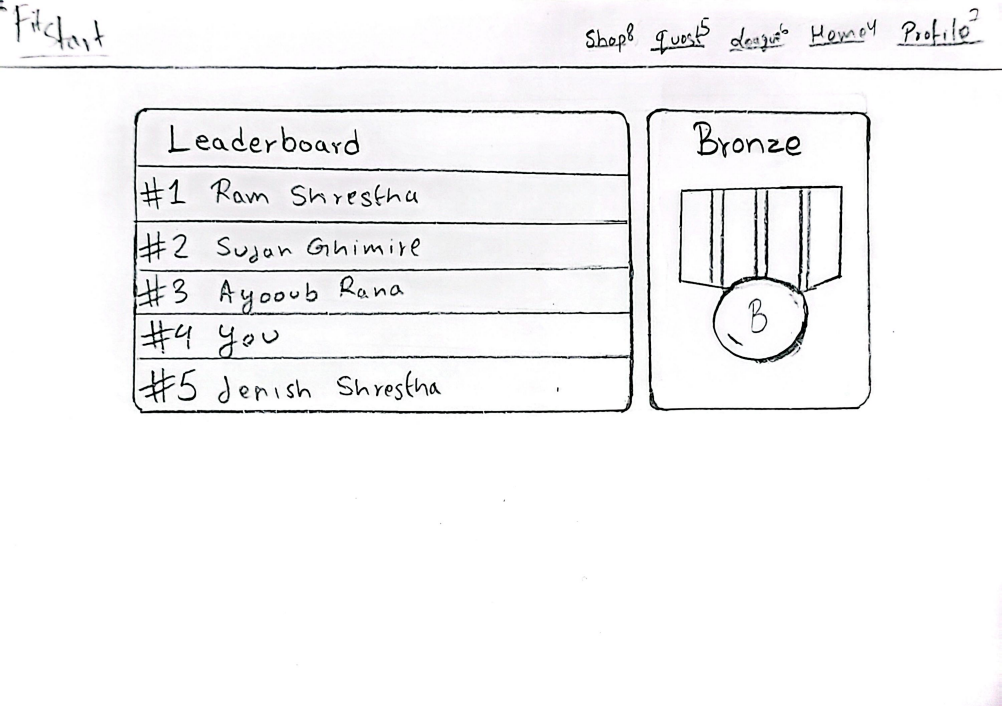 Fit
Start
Shop8 quest5 league6 Home4 Profile7
Leaderboard
#1 Ram Shrestha
#2 Sujan Ghimire
#3 Ayooub Rana
#4 You
#5 Jenish Shrestha
Bronze
B